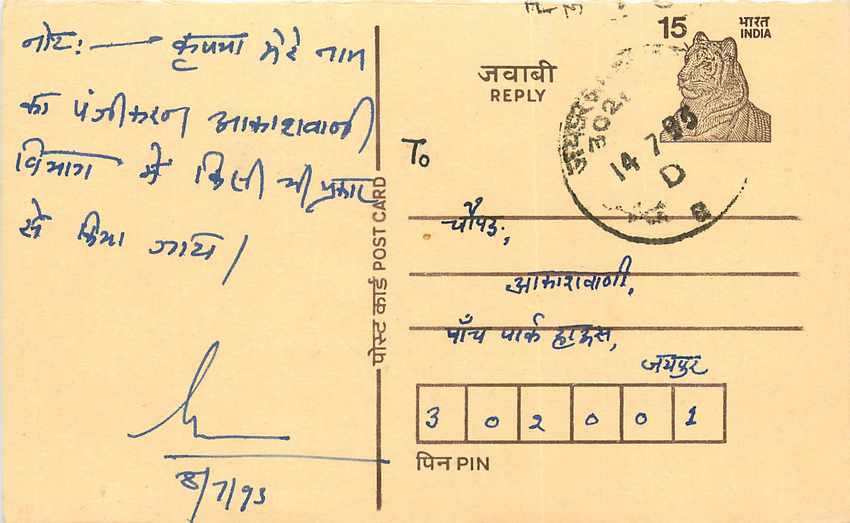 नोट:— कृपया मेरे नाम
का पंजीकरण आकाशवाणी
विभाग में किसी भी प्रकार
से किया जाय।
8/7/93
पोस्ट कार्ड POST CARD
15 भारत
INDIA
जवाबी
REPLY
302
14 7 93
D
To
चौपड़,
आकाशवाणी,
पाँच पार्क हाऊस,
जयपुर
3 0 2 0 0 1
पिन PIN